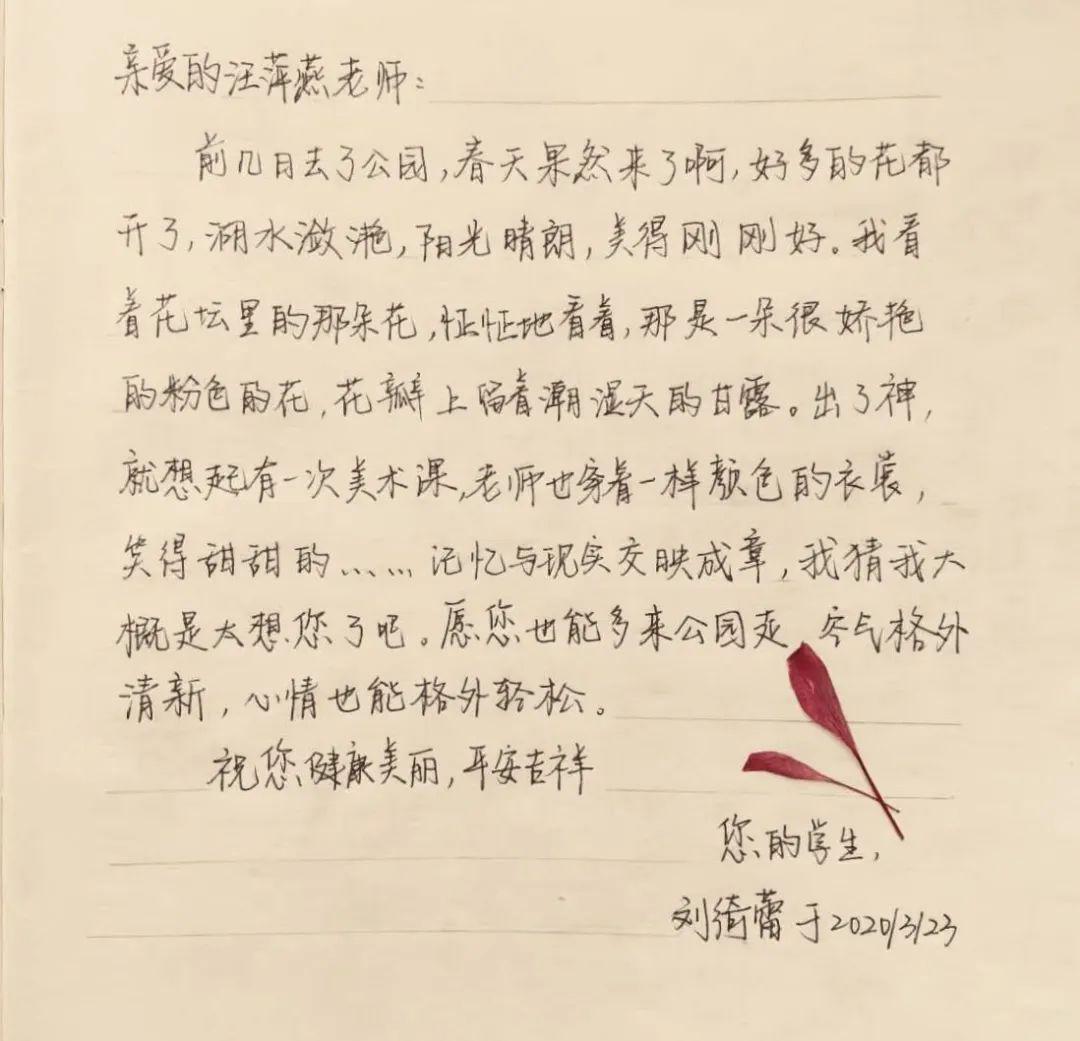 亲爱的汪萍燕老师：
前几日去了公园，春天果然来了啊，好多的花都
开了，湖水潋滟，阳光晴朗，美得刚刚好。我看
着花坛里的那朵花，怔怔地看着，那是一朵很娇艳
的粉色的花，花瓣上留着潮湿天的甘露。出了神，
就想起有一次美术课，老师也穿着一样颜色的衣裳，
笑得甜甜的……记忆与现实交映成章，我猜我大
概是太想您了吧。愿您也能多来公园走，空气格外
清新，心情也能格外轻松。
祝您健康美丽，平安吉祥
您的学生，
刘绮蕾于2020/3/23